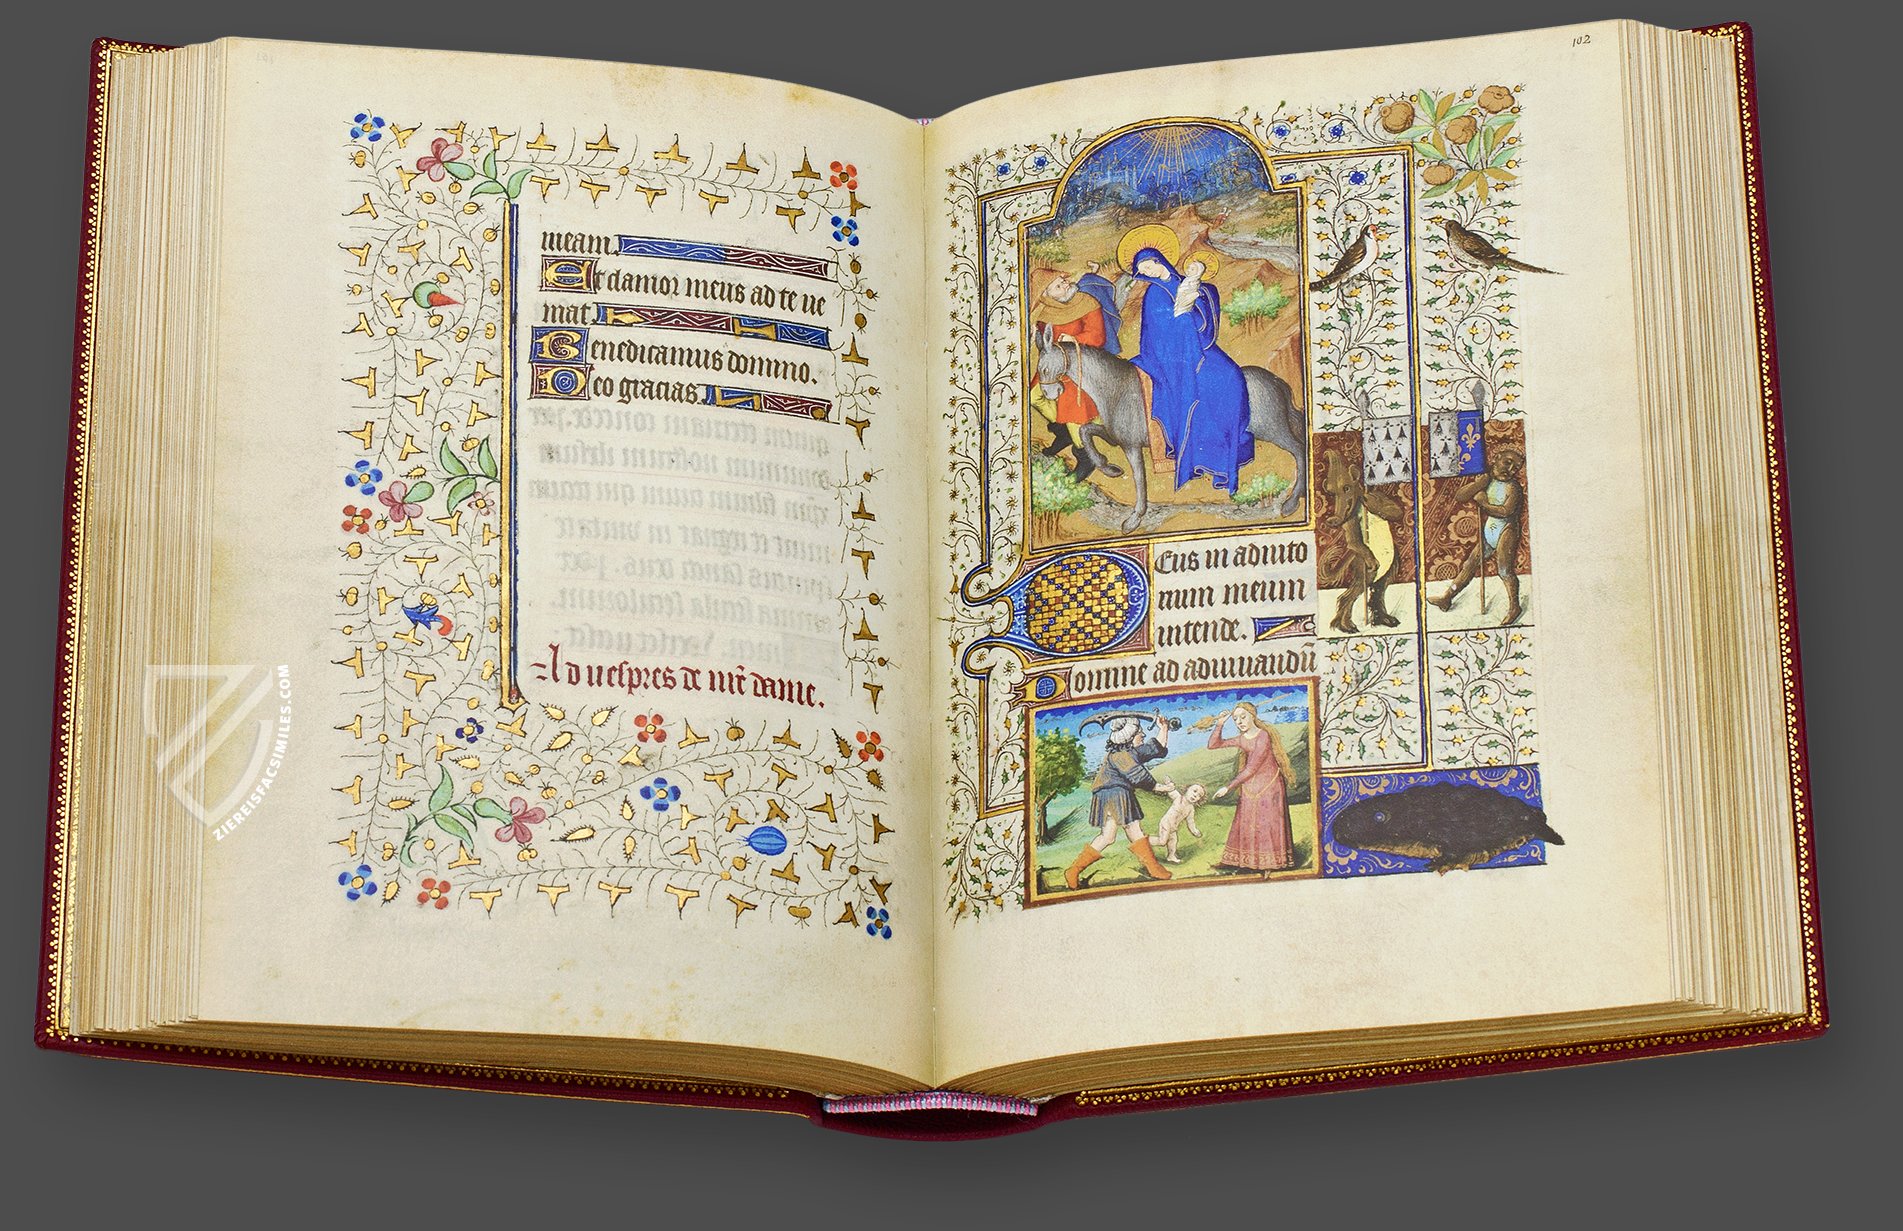 meam.
Et clamor meus ad te ve
niat.
Benedicamus domino.
Deo gracias.
Ad vespres de nr̄e dame.
102
Deus in adiuto
rium meum
intende.
Domine ad adiuuandū
ZIEREISFACSIMILES.COM